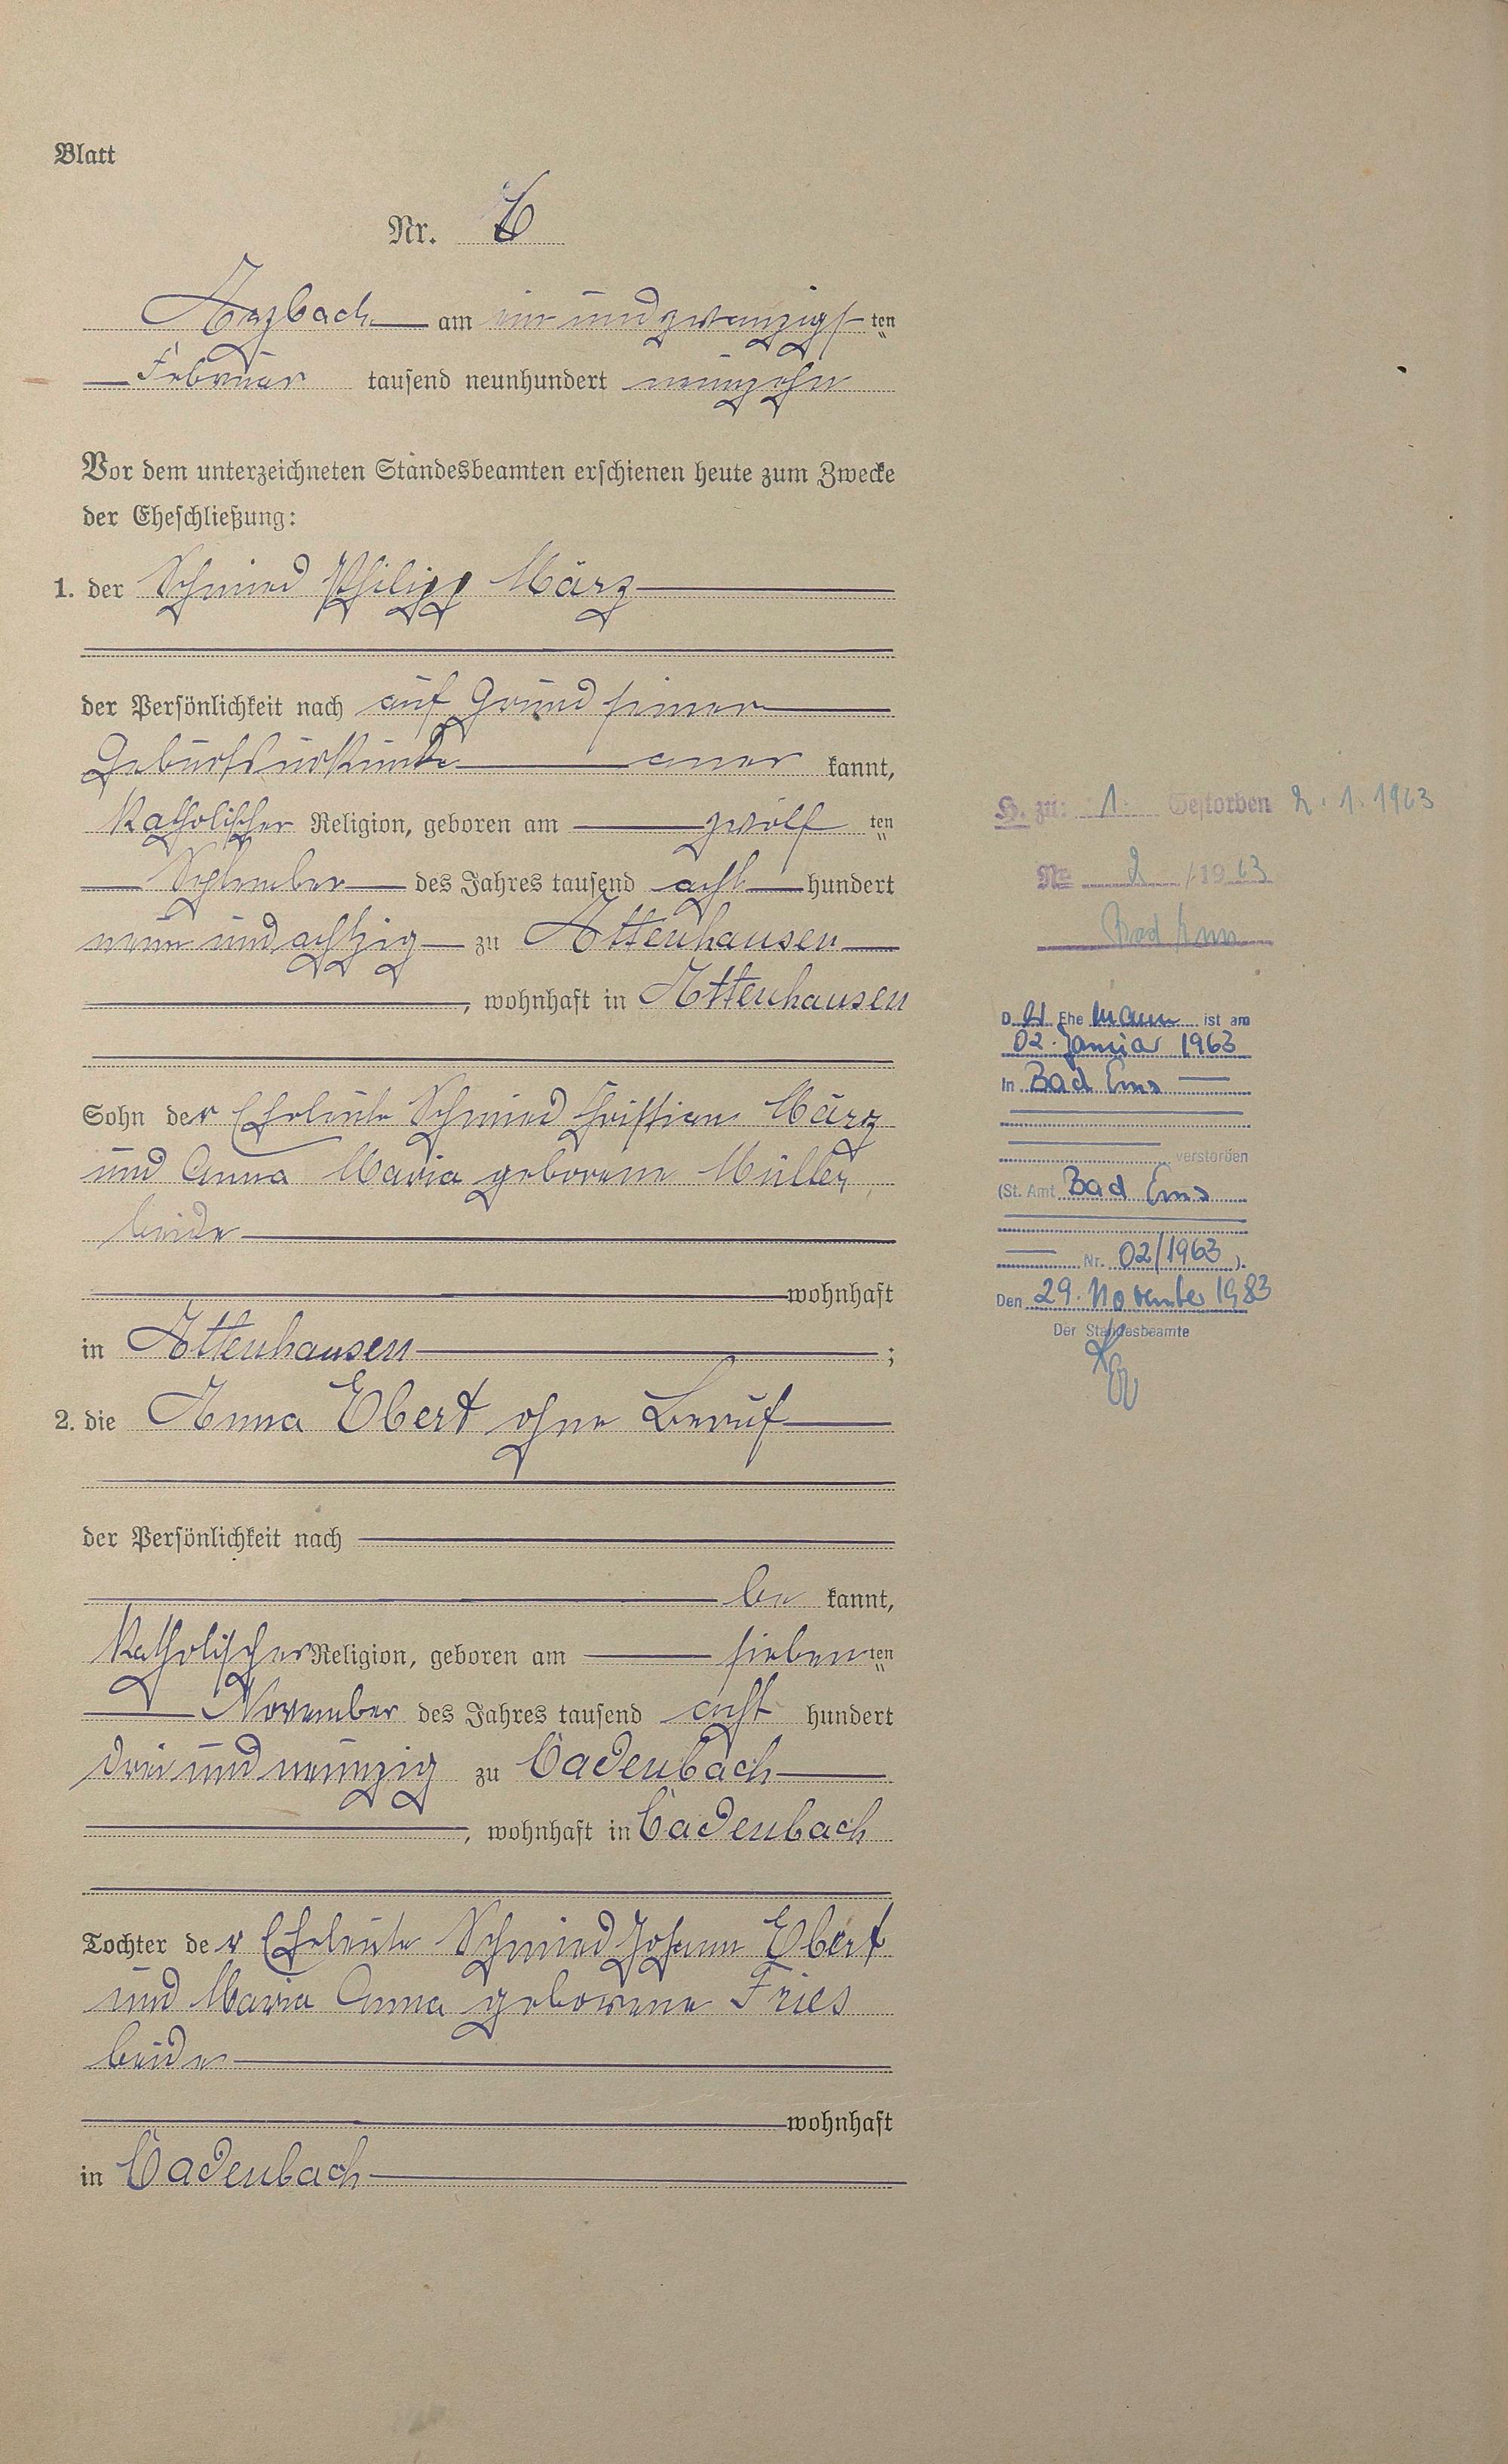 Blatt
Nr. 6
Arzbach am ein und zwanzigsten
Februar tausend neunhundert neunzehn
Vor dem unterzeichneten Standesbeamten erschienen heute zum Zwecke
der Eheschließung:
1. der Schmied Philipp März
der Persönlichkeit nach auf Grund seiner
Geburtsurkunde aner kannt,
katholischer Religion, geboren am zwölf ten
September des Jahres tausend acht hundert
neun und achtzig zu Attenhausen
, wohnhaft in Attenhausen
Sohn der Eheleute Schmied Christian März
und Anna Maria geborene Müller,
beide
wohnhaft
in Attenhausen ;
2. die Anna Ebert ohne Beruf
der Persönlichkeit nach
be kannt,
katholischer Religion, geboren am sieben ten
November des Jahres tausend acht hundert
drei und neunzig zu Cadenbach
, wohnhaft in Cadenbach
Tochter der Eheleute Schmied Johann Ebert
und Maria Anna geborene Fries
beide
wohnhaft
in Cadenbach
H. zu: 1. Gestorben 2.1.1963
Nr. 2 /1963
Bad Ems
D er Ehe mann ist am
02. Januar 1963
in Bad Ems
verstorben
(St. Amt Bad Ems
Nr. 02/1963 ).
Den 29. November 1983
Der Standesbeamte